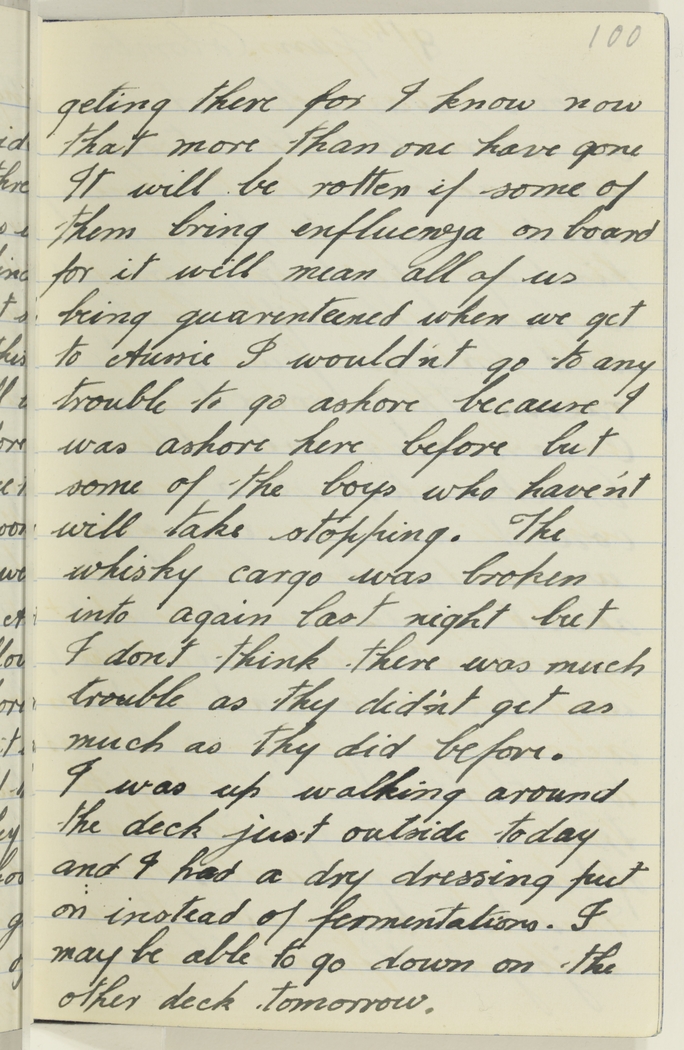 100
geting there for I know now
that more than one have gone
It will be rotten if some of
them bring enfluenza on board
for it will mean all of us
being guarenteened when we get
to Aussie I wouldn't go to any
trouble to go ashore because I
was ashore here before but
some of the boys who haven't
will take stopping. The
whisky cargo was broken
into again last night but
I don't think there was much
trouble as thy didn't get as
much as thy did before.
I was up walking around
the deck just outside today
and I had a dry dressing put
on instead of fermentations. I
may be able to go down on the
other deck tomorrow.